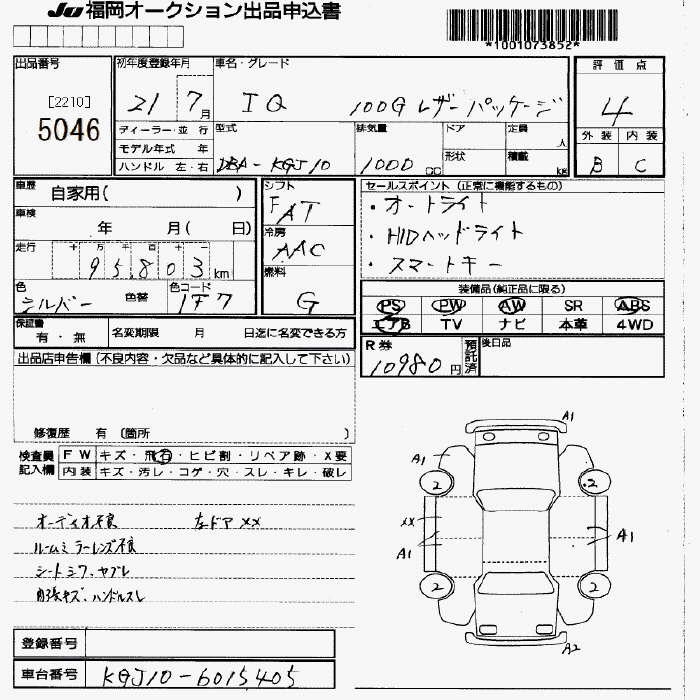 JU 福岡オークション出品申込書
*1001073852*
出品番号 [2210] 5046
初年度登録年月 21 7月
車名・グレード IQ 100G レザーパッケージ
評価点 4
外装 B 内装 C
ディーラー・並行
モデル年式 年
ハンドル 左・右
型式 DBA-KGJ10
排気量 1000 CC
ドア
形状
定員 人
積載 kg
車歴 自家用( )
車検 年 月( 日)
走行 十万千百十 95,803 km
色 シルバー 色替 色コード 1F7
シフト F AT
冷房 AAC
燃料 G
セールスポイント (正常に機能するもの)
・オートライト
・HIDヘッドライト
・スマートキー
装備品(純正品に限る)
PS PW AW SR ABS
エアB TV ナビ 本革 4WD
保証書 有・無
名変期限 月 日迄に名変できる方
R券 10980円 預託済
後日品
出品店申告欄(不良内容・欠品など具体的に記入して下さい)
修復歴 有 〔箇所 〕
検査員記入欄
FW キズ・飛石・ヒビ割・リペア跡・X要
内装 キズ・汚レ・コゲ・穴・スレ・キレ・破レ
オーディオ不良 左ドアXX
ルームミラーレンズ不良
シートシワ、ヤブレ
内張キズ、ハンドルスレ
A1
A1
2 2
XX
A1 A1
2 2
A2
登録番号
車台番号 KGJ10-6015405